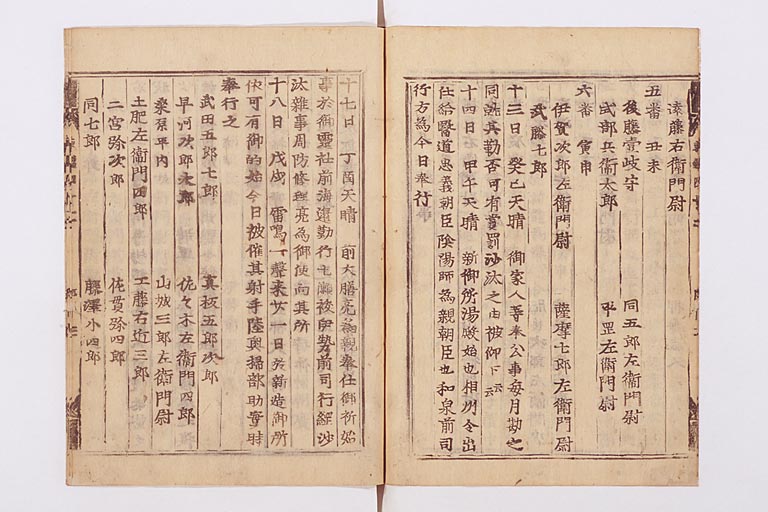 遠藤右衛門尉
五番 丑未
後藤壹岐守 同五郎左衛門尉
式部兵衛太郎 甲斐左衛門尉
六番 寅申
伊賀次郎左衛門尉 薩摩七郎左衛門尉
武藤七郎
十三日 癸巳天晴 御家人等奉公事毎月勘之
同就其勤否可有賞罰沙汰之由被仰下云云
十四日 甲午天晴 新御所湯殿始也相州令出
仕給醫道忠義朝臣陰陽師為親朝臣也和泉前司
行方為今日奉行
十七日 丁酉天晴 前大膳亮為親奉仕御祈始
事於御靈社前海邊勤行 被伊勢前司行經沙
汰雜事周防修理亮為御使向其所
十八日 戊戌 雷鳴一聲来廿一日於新造御所
依可有御的始今日被催其射手陸奥掃部助實時
奉行之
武田五郎七郎 真板五郎次郎
早河次郎太郎 佐々木左衛門四郎
桑原平内 山城三郎左衛門尉
土肥左衛門四郎 工藤右近三郎
二宮弥次郎 佐貫弥四郎
同七郎 藤澤小四郎